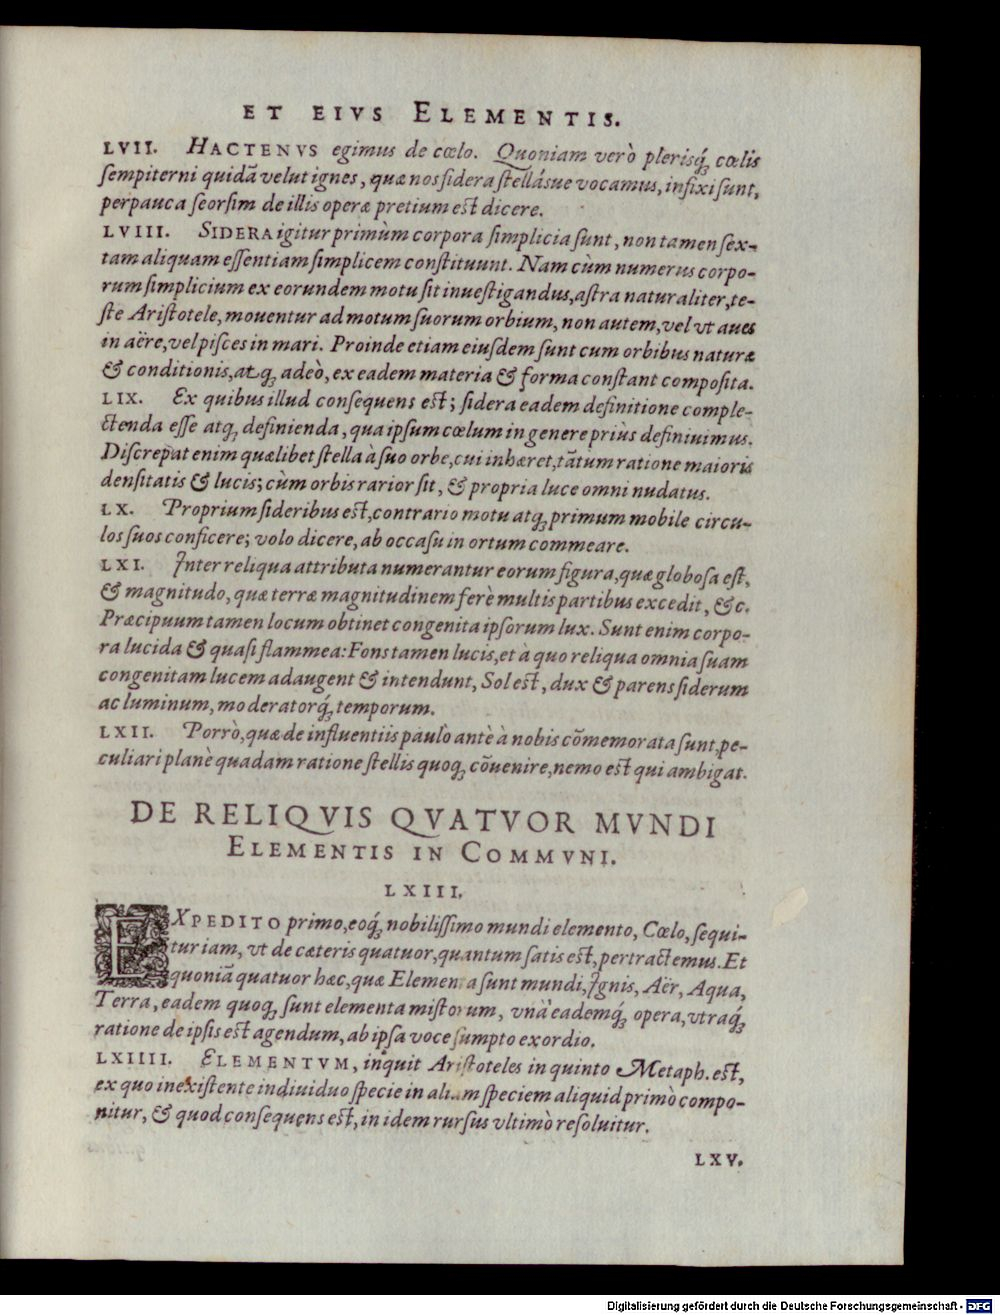 ET EIVS ELEMENTIS.
LVII. HACTENVS egimus de cœlo. Quoniam verò plerisq́; cœlis
sempiterni quidã velut ignes, quæ nos sidera stellásue vocamus, infixi sunt,
perpauca seorsim de illis operæ pretium est dicere.
LVIII. SIDERA igitur primùm corpora simplicia sunt, non tamen sex-
tam aliquam essentiam simplicem constituunt. Nam cùm numerus corpo-
rum simplicium ex eorundem motu sit inuestigandus, astra naturaliter, te-
ste Aristotele, mouentur ad motum suorum orbium, non autem, vel vt aues
in aëre, vel pisces in mari. Proinde etiam eiusdem sunt cum orbibus naturæ
& conditionis, atq; adeò, ex eadem materia & forma constant composita.
LIX. Ex quibus illud consequens est; sidera eadem definitione comple-
ctenda esse atq; definienda, qua ipsum cœlum in genere priùs definiuimus.
Discrepat enim quælibet stella à suo orbe, cui inhæret, tãtum ratione maioris
densitatis & lucis; cùm orbis rarior sit, & propria luce omni nudatus.
LX. Proprium sideribus est, contrario motu atq; primum mobile circu-
los suos conficere; volo dicere, ab occasu in ortum commeare.
LXI. Inter reliqua attributa numerantur eorum figura, quæ globosa est,
& magnitudo, quæ terræ magnitudinem ferè multis partibus excedit, &c.
Præcipuum tamen locum obtinet congenita ipsorum lux. Sunt enim corpo-
ra lucida & quasi flammea: Fons tamen lucis, et à quo reliqua omnia suam
congenitam lucem adaugent & intendunt, Sol est, dux & parens siderum
ac luminum, moderatorq́; temporum.
LXII. Porrò, quæ de influentiis paulò antè à nobis cõmemorata sunt, pe-
culiari planè quadam ratione stellis quoq; cõuenire, nemo est qui ambigat.
DE RELIQVIS QVATVOR MVNDI
ELEMENTIS IN COMMVNI.
LXIII.
EXPEDITO primo, eoq́; nobilissimo mundi elemento, Cœlo, sequi-
tur iam, vt de cæteris quatuor, quantum satis est, pertractemus. Et
quoniã quatuor hæc, quæ Elementa sunt mundi, Ignis, Aër, Aqua,
Terra, eadem quoq; sunt elementa mistorum, vnà eademq́; opera, vtraq́;
ratione de ipsis est agendum, ab ipsa voce sumpto exordio.
LXIIII. ELEMENTVM, inquit Aristoteles in quinto Metaph. est,
ex quo inexistente indiuiduo specie in aliam speciem aliquid primò compo-
nitur, & quod consequens est, in idem rursus vltimò resoluitur.
LXV.
Digitalisierung gefördert durch die Deutsche Forschungsgemeinschaft - DFG